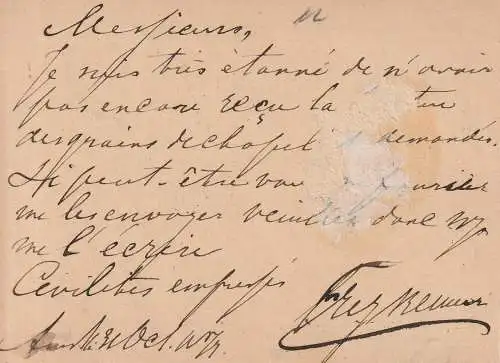 Messieurs,
Je suis très étonné de n'avoir
pas encore reçu la
des grains de chapelet demandés.
Si peut-être vous ne pouviez
me les envoyer veuillez donc
me l'écrire
Civilités empressés
31 Oct.